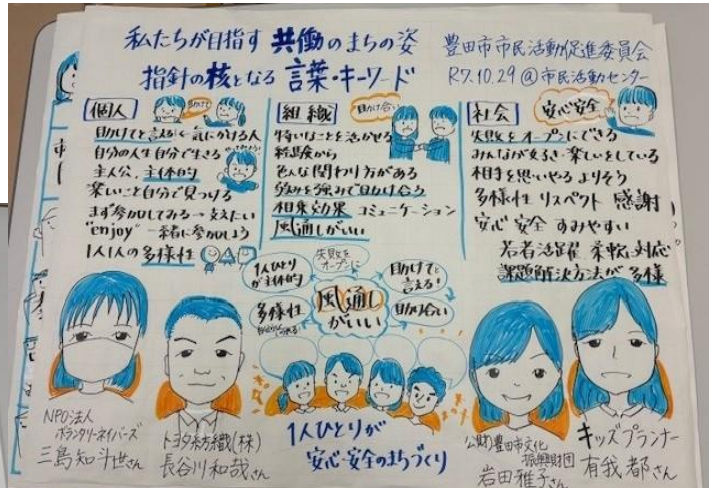 私たちが目指す 共働のまちの姿
指針の核となる 言葉・キーワード
豊田市市民活動促進委員会
R7.10.29@市民活動センター
個人
助けて
助けてと言える⇔気にかける人
自分の人生自分で生きる
主人公、主体的
楽しいこと自分で見つける
まず参加してみる→支えたい
"enjoy" 一緒に参加しよう
1人1人の多様性
組織
助け合い
特いなことを活かせる
経験から
色んな関わり方がある
強みを強みで助け合う
相乗効果 コミュニケーション
風通しがいい
社会
安心安全
失敗をオープンにできる
みんなが明るき楽しいをしている
相手を思いやるよりそう
多様性 リスペクト 感謝
安心 安全 すみやすい
若者活躍 柔軟に対応
課題解決方法が多様
1人ひとりが主体的
失敗をオープンに
助けてと言える!
多様性
風通しがいい
助け合い
1人ひとりが
安心・安全のまちづくり
NPO法人
ボランタリーネイバーズ
三島知斗世さん
トヨタ紡織(株)
長谷川和哉さん
公財)豊田市文化
振興財団
岩田雅子さん
キッズプランナー
有我都さん